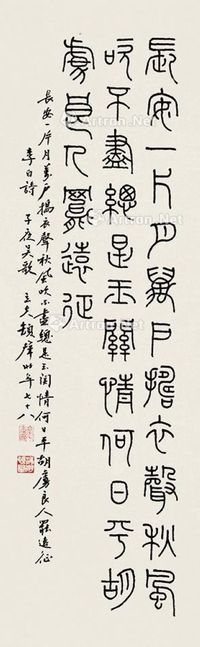 長安一片月萬戶擣衣聲秋風
吹不盡總是玉關情何日平胡
虜良人罷遠征
長安一片月萬戶搗衣聲秋風吹不盡總是玉關情何日平胡虜良人罷遠征
李白詩 子夜吳歌 時年七十八